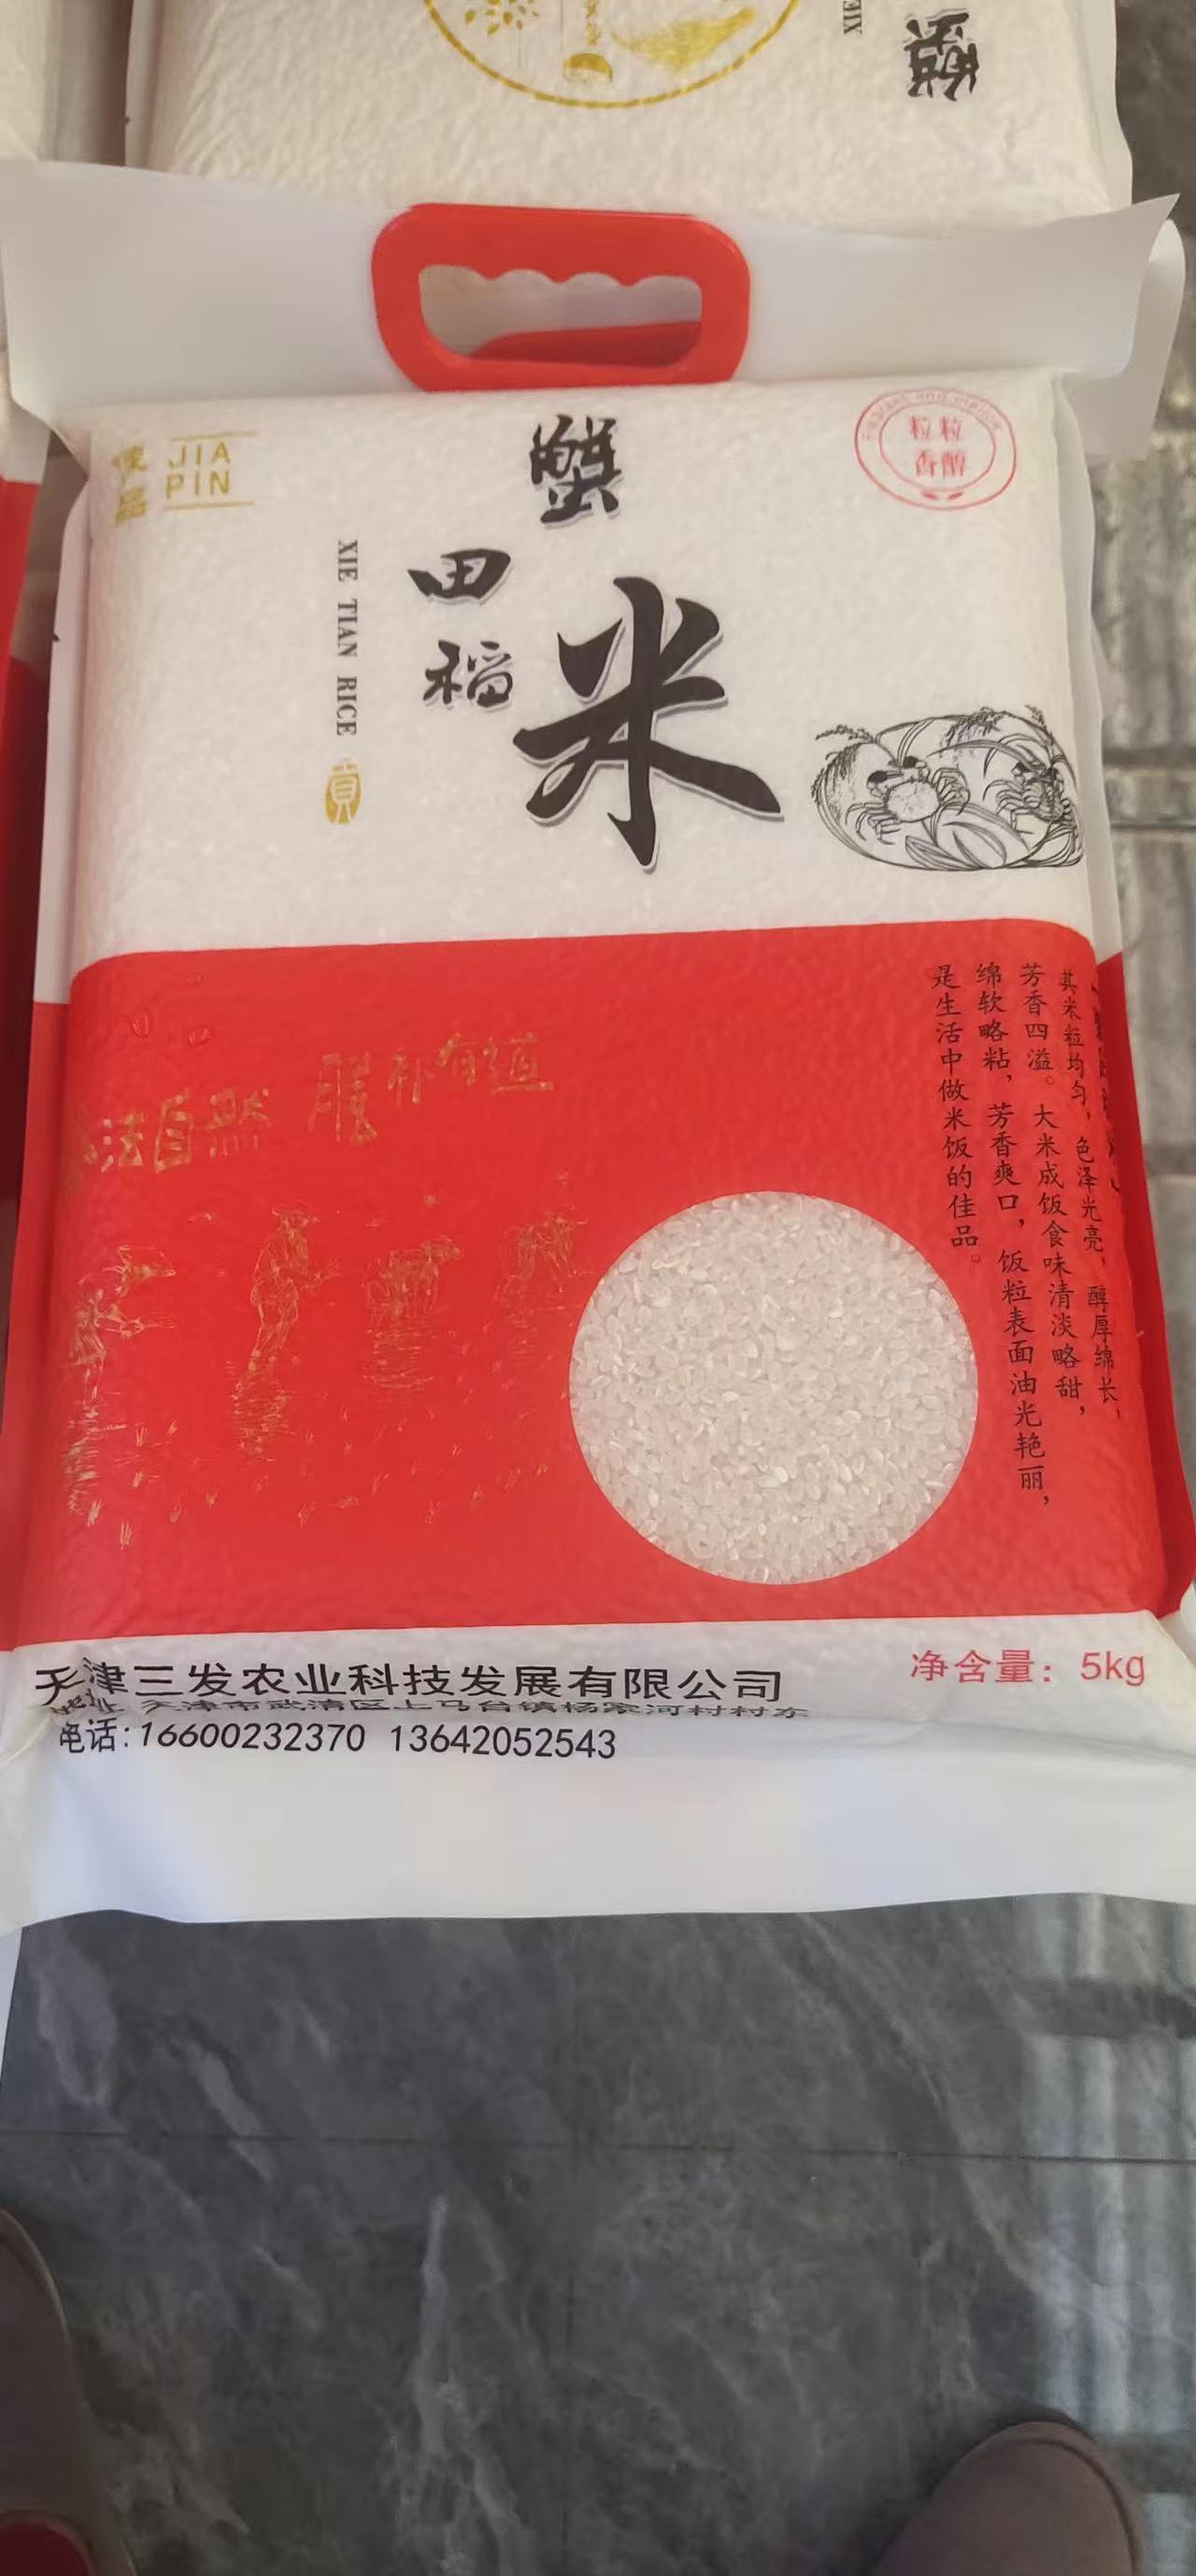 蟹
佳品
JIA
PIN
蟹
田
稻
米
XIE TIAN RICE
貢
粒粒
香醇
法自然 有道
其米粒均匀，色泽光亮，醇厚绵长，
芳香四溢。大米成饭食味清淡略甜，
绵软略粘，芳香爽口，饭粒表面油光艳丽，
是生活中做米饭的佳品。
净含量：5kg
天津三发农业科技发展有限公司
地址 天津市武清区上马台镇杨家河村村东
电话:16600232370 13642052543